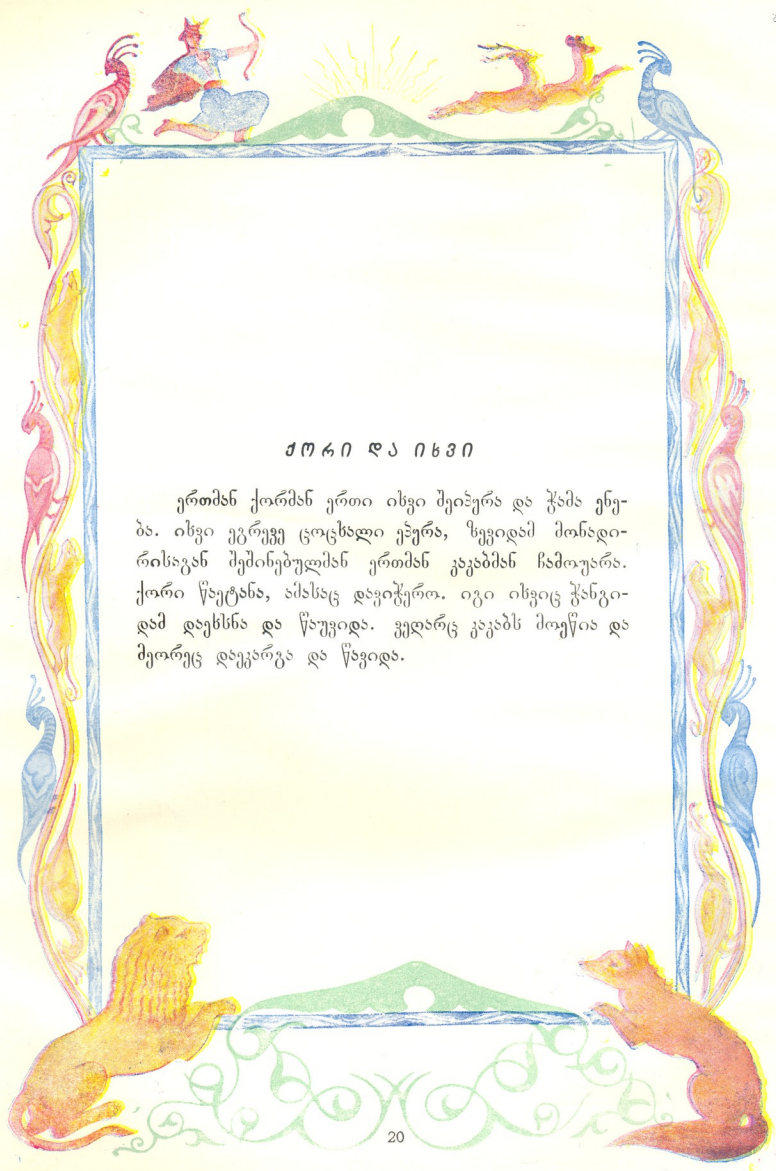 ქორი და იხვი
ერთმან ქორმან ერთი იხვი შეიპყრა და ჭამა ენე-
ბა. იხვი ეგრევე ცოცხალი ეპყრა, ზევიდამ მონადი-
რისაგან შეშინებულმან ერთმან კაკაბმან ჩამოუარა.
ქორი წაეტანა, ამასაც დავიჭერო. იგი იხვიც ჭანგი-
დამ დაეხსნა და წაუვიდა. ვეღარც კაკაბს მოეწია და
მეორეც დაეკარგა და წავიდა.
20